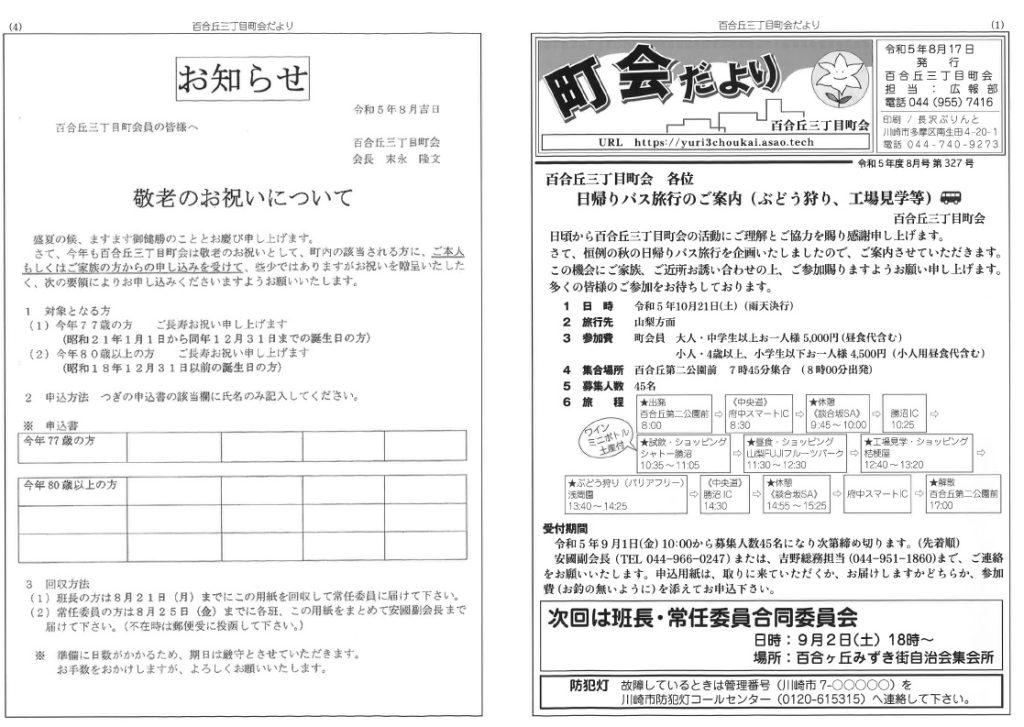 (4)
百合丘三丁目町会だより
お知らせ
令和５年８月吉日
百合丘三丁目町会員の皆様へ
百合丘三丁目町会
会長　末永　隆文
敬老のお祝いについて
盛夏の候、ますます御健勝のこととお慶び申し上げます。
さて、今年も百合丘三丁目町会は敬老のお祝いとして、町内の該当される方に、ご本人
もしくはご家族の方からの申し込みを受けて、些少ではありますがお祝いを贈呈いたした
く、次の要領によりお申し込みくださいますようお願いいたします。
１　対象となる方
（１）今年７７歳の方　　ご長寿お祝い申し上げます
（昭和２１年１月１日から同年１２月３１日までの誕生日の方）
（２）今年８０歳以上の方　　ご長寿お祝い申し上げます
（昭和１８年１２月３１日以前の誕生日の方）
２　申込方法　つぎの申込書の該当欄に氏名のみ記入してください。
※　申込書
今年 77 歳の方
今年 80 歳以上の方
３　回収方法
（１）班長の方は８月２１日（月）までにこの用紙を回収して常任委員に届けて下さい。
（２）常任委員の方は８月２５日（金）までに各班、この用紙をまとめて安國副会長まで
届けて下さい。（不在時は郵便受に投函して下さい。）
※　準備に日数がかかるため、期日は厳守とさせていただきます。
お手数をおかけしますが、よろしくお願いいたします。
百合丘三丁目町会だより
(1)
町会だより
百合丘三丁目町会
URL　https://yuri3choukai.asao.tech
令和５年８月17日
発　行
百合丘三丁目町会
担　当　：　広報部
電話 044 (955) 7416
印刷 / 長沢ぷりんと
川崎市多摩区南生田4-20-1
電話 044-740-9273
令和５年度８月号 第 327 号
百合丘三丁目町会　各位
日帰りバス旅行のご案内（ぶどう狩り、工場見学等）
百合丘三丁目町会
日頃から百合丘三丁目町会の活動にご理解とご協力を賜り感謝申し上げます。
さて、恒例の秋の日帰りバス旅行を企画いたしましたので、ご案内させていただきます。
この機会にご家族、ご近所お誘い合わせの上、ご参加賜りますようお願い申し上げます。
多くの皆様のご参加をお待ちしております。
１　日　時　令和５年10月21日(土)（雨天決行）
２　旅行先　山梨方面
３　参加費　町会員　大人・中学生以上お一人様 5,000円（昼食代含む）
小人・4歳以上、小学生以下お一人様 4,500円（小人用昼食代含む）
４　集合場所　百合丘第二公園前　７時45分集合　（８時00分出発）
５　募集人数　45名
６　旅　程
★出発
百合丘第二公園前
8:00
⇨
《中央道》
府中スマートIC
8:30
⇨
★休憩
《談合坂SA》
9:45～10:00
⇨
勝沼IC
10:25
⇨
ワイン
ミニボトル
土産付
★試飲・ショッピング
シャトー勝沼
10:35～11:05
⇨
★昼食・ショッピング
山梨FUJIフルーツパーク
11:30～12:30
⇨
★工場見学・ショッピング
桔梗屋
12:40～13:20
⇨
★ぶどう狩り（バリアフリー）
浅間園
13:40～14:25
⇨
《中央道》
勝沼 IC
14:30
⇨
★休憩
《談合坂SA》
14:55～15:25
⇨
府中スマートIC
⇨
★解散
百合丘第二公園前
17:00
受付期間
令和５年９月1日(金) 10:00から募集人数45名になり次第締め切ります。(先着順)
安國副会長（TEL 044-966-0247）または、吉野総務担当（044-951-1860)まで、ご連絡
をお願いいたします。申込用紙は、取りに来ていただくか、お届けしますかどちらか、参加
費（お釣の無いように）を添えてお申込下さい。
次回は班長・常任委員合同委員会
日時：９月２日(土) 18時～
場所：百合ヶ丘みずき街自治会集会所
防犯灯　故障しているときは管理番号（川崎市 7-○○○○○）を
川崎市防犯灯コールセンター（0120-615315）へ連絡して下さい。